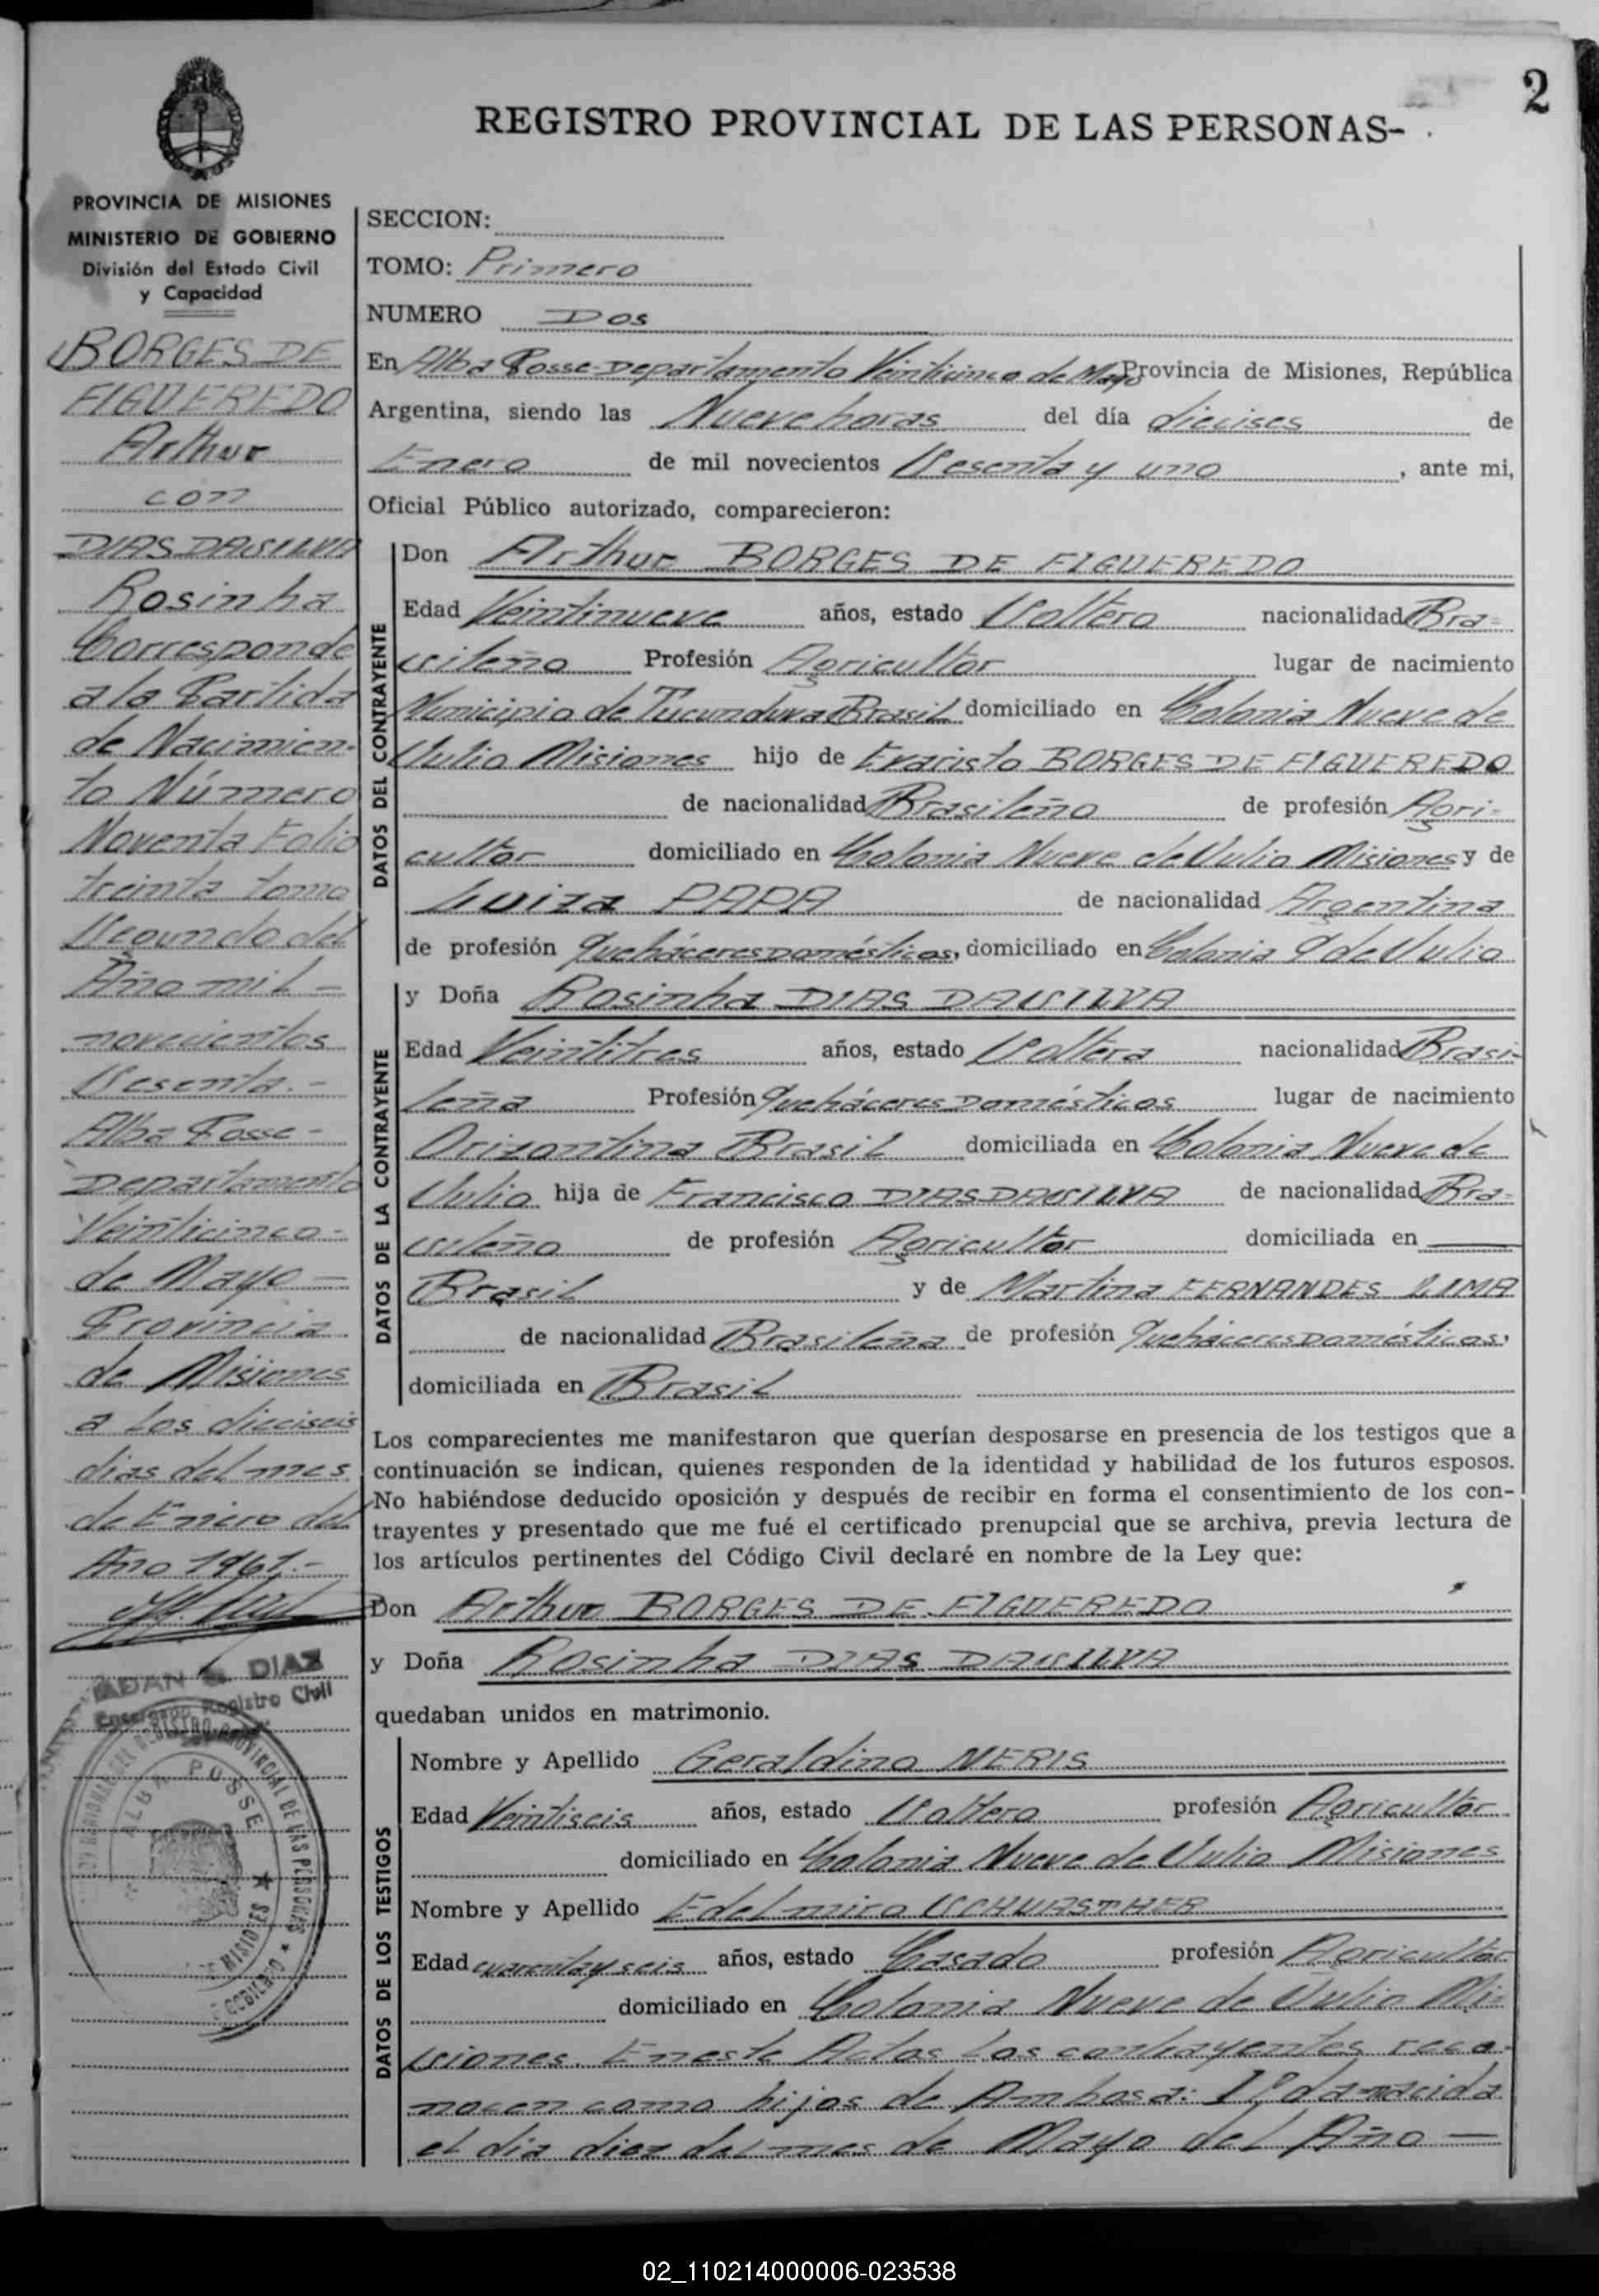 2
REGISTRO PROVINCIAL DE LAS PERSONAS-
PROVINCIA DE MISIONES
MINISTERIO DE GOBIERNO
División del Estado Civil
y Capacidad
BORGES DE
FIGUEREDO
Arthur
con
DIAS DA SILVA
Rosinha
Corresponde
a la Partida
de Nacimien-
to Número
Noventa Folio
treinta tomo
Segundo del
Año mil -
novecientos
Sesenta.-
Alba Posse -
Departamento
Veinticinco -
de Mayo -
Provincia
de Misiones
a los dieciseis
dias del mes
de Enero del
Año 1961.-
ADAN S. DIAZ
Encargado Registro Civil
ALBA POSSE
MISIONES
SECCION:
TOMO: Primero
NUMERO Dos
En Alba Posse-Departamento Veinticinco de Mayo Provincia de Misiones, República
Argentina, siendo las Nueve horas del día dieciseis de
Enero de mil novecientos Sesenta y uno, ante mi,
Oficial Público autorizado, comparecieron:
DATOS DEL CONTRAYENTE
Don Arthur BORGES DE FIGUEREDO
Edad Veintinueve años, estado Soltero nacionalidad Bra-
sileño Profesión Agricultor lugar de nacimiento
Municipio de Tucunduva Brasil domiciliado en Colonia Nueve de
Julio Misiones hijo de Evaristo BORGES DE FIGUEREDO
de nacionalidad Brasileño de profesión Agri-
cultor domiciliado en Colonia Nueve de Julio Misiones y de
Luiza PAPA de nacionalidad Argentina
de profesión Quehaceres Domésticos, domiciliado en Colonia 9 de Julio
DATOS DE LA CONTRAYENTE
y Doña Rosinha DIAS DA SILVA
Edad Veintitres años, estado Soltera nacionalidad Brasi-
leña Profesión Quehaceres Domésticos lugar de nacimiento
Orizontina Brasil domiciliada en Colonia Nueve de
Julio hija de Francisco DIAS DA SILVA de nacionalidad Bra-
sileño de profesión Agricultor domiciliada en
Brasil y de Martina FERNANDES LIMA
de nacionalidad Brasileña de profesión Quehaceres Domésticos,
domiciliada en Brasil
Los comparecientes me manifestaron que querían desposarse en presencia de los testigos que a
continuación se indican, quienes responden de la identidad y habilidad de los futuros esposos.
No habiéndose deducido oposición y después de recibir en forma el consentimiento de los con-
trayentes y presentado que me fué el certificado prenupcial que se archiva, previa lectura de
los artículos pertinentes del Código Civil declaré en nombre de la Ley que:
Don Arthur BORGES DE FIGUEREDO
y Doña Rosinha DIAS DA SILVA
quedaban unidos en matrimonio.
DATOS DE LOS TESTIGOS
Nombre y Apellido Geraldino NERIS
Edad Veintiseis años, estado Soltero profesión Agricultor
domiciliado en Colonia Nueve de Julio Misiones
Nombre y Apellido Edelmiro SCHWASTHER
Edad cuarenta y seis años, estado Casado profesión Agricultor
domiciliado en Colonia Nueve de Julio Mi-
siones. En este Actos los contrayentes reco-
nocen como hijos de Ambos a: 1º da nacida
el dia diez del mes de Mayo del Año —
02_110214000006-023538